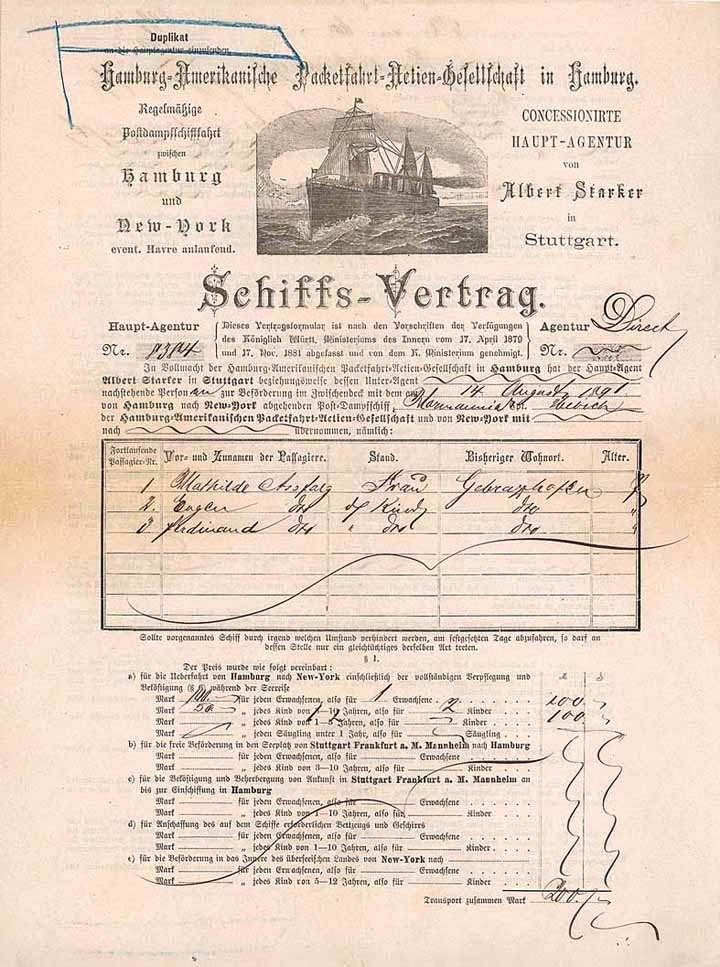 Duplikat
an die Hauptagentur einzusenden
Hamburg-Amerikanische Packetfahrt-Actien-Gesellschaft in Hamburg.
Regelmäßige
Postdampfschifffahrt
zwischen
Hamburg
und
New-York
event. Havre anlaufend.
CONCESSIONIRTE
HAUPT-AGENTUR
von
Albert Starker
in
Stuttgart.
Schiffs-Vertrag.
Haupt-Agentur
Nr. 8384
Dieses Vertragsformular ist nach den Vorschriften der Verfügungen
des Königlich Württ. Ministeriums des Innern vom 17. April 1879
und 17. Nov. 1881 abgefasst und von dem K. Ministerium genehmigt.
Agentur Direct
Nr.
In Vollmacht der Hamburg-Amerikanischen Packetfahrt-Actien-Gesellschaft in Hamburg hat der Haupt-Agent
Albert Starker in Stuttgart beziehungsweise dessen Unter-Agent
nachstehende Personen zur Beförderung im Zwischendeck mit dem am 14 August 1891
von Hamburg nach New-York abgehenden Post-Dampfschiff
der Hamburg-Amerikanischen Packetfahrt-Actien-Gesellschaft und von New-York mit
nach übernommen, nämlich:
Fortlaufende Passagier-Nr. Vor- und Zunamen der Passagiere. Stand. Bisheriger Wohnort. Alter.
1. Mathilde Assfalg Frau Gebrazhofen
2. Eugen dto Kind dto
3 Ferdinand dto " dto dto
Sollte vorgenanntes Schiff durch irgend welchen Umstand verhindert werden, am festgesetzten Tage abzufahren, so darf an
dessen Stelle nur ein gleichtüchtiges derselben Art treten.
§ 1.
Der Preis wurde wie folgt vereinbart:
a) für die Ueberfahrt von Hamburg nach New-York einschließlich der vollständigen Verpflegung und
Beköstigung während der Seereise
Mark 100. für jeden Erwachsenen, also für 1 Erwachsene 100
Mark 50 „ jedes Kind von 1-10 Jahren, also für 2 Kinder 100
Mark „ jedes Kind von Jahren, also für Kinder
Mark „ jeden Säugling unter 1 Jahr, also für Säugling
b) für die freie Beförderung in den Seeplatz von Stuttgart Frankfurt a. M. Mannheim nach Hamburg
Mark für jeden Erwachsenen, also für Erwachsene
Mark „ jedes Kind von 3-10 Jahren, also für Kinder
c) für die Beköstigung und Beherbergung von Ankunft in Stuttgart Frankfurt a. M. Mannheim an
bis zur Einschiffung in Hamburg
Mark für jeden Erwachsenen, also für Erwachsene
Mark „ jedes Kind von 1-10 Jahren, also für Kinder
d) für Anschaffung des auf dem Schiffe erforderlichen Bettzeugs und Geschirrs
Mark für jeden Erwachsenen, also für Erwachsene
Mark „ jedes Kind von 1-10 Jahren, also für Kinder
e) für die Beförderung in das Innere des überseeischen Landes von New-York nach
Mark für jeden Erwachsenen, also für Erwachsene
Mark „ jedes Kind von 5-12 Jahren, also für Kinder
Transport zusammen Mark 200.